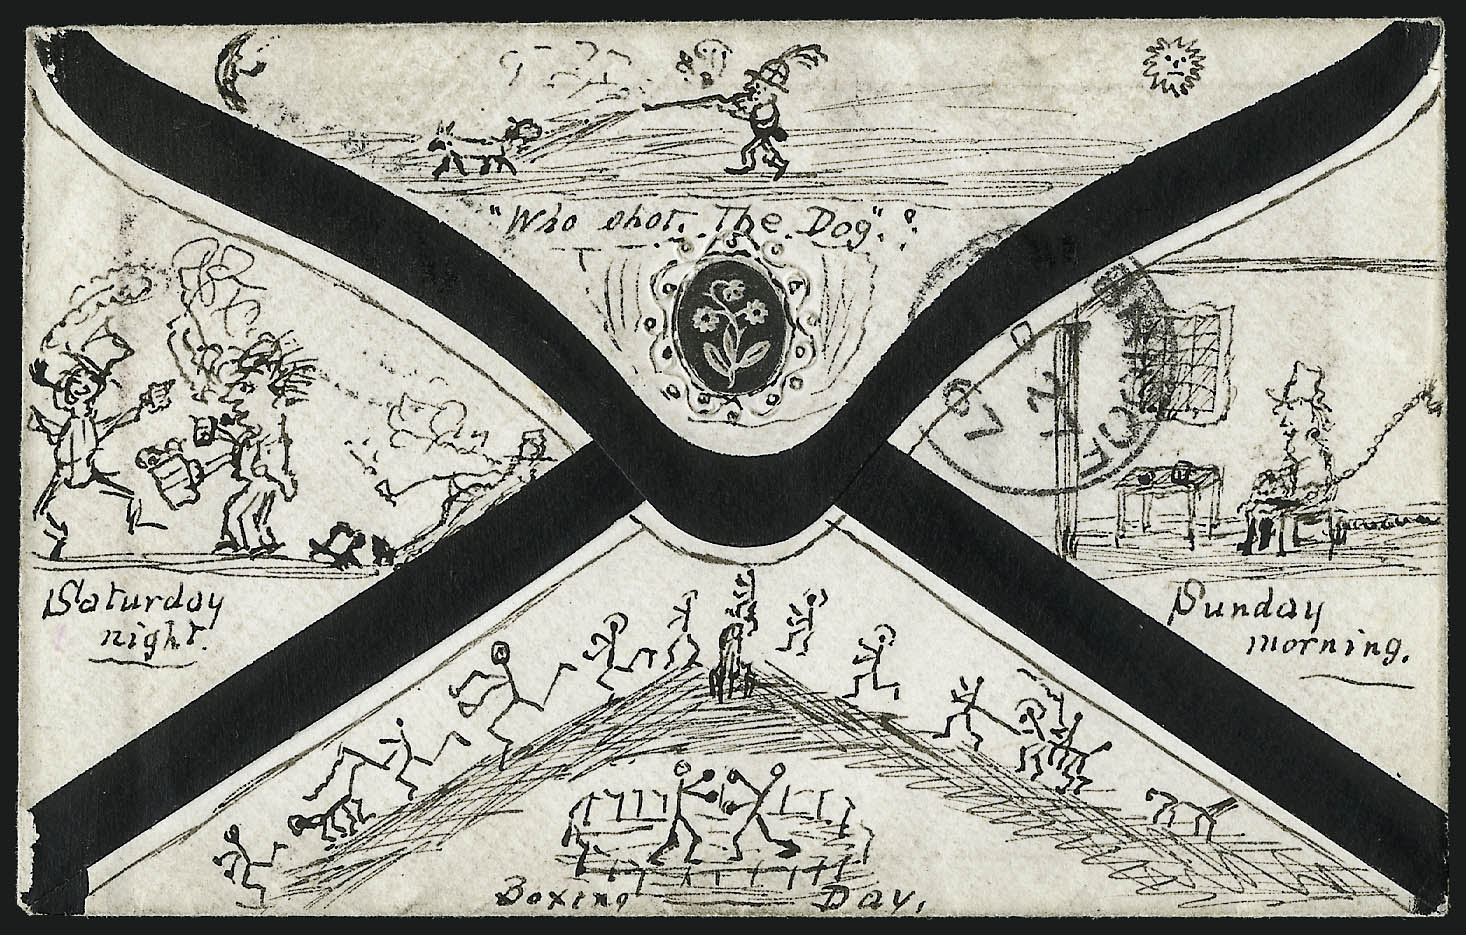 "Who shot. The Dog".?
Saturday
night.
Sunday
morning.
Boxing Day.